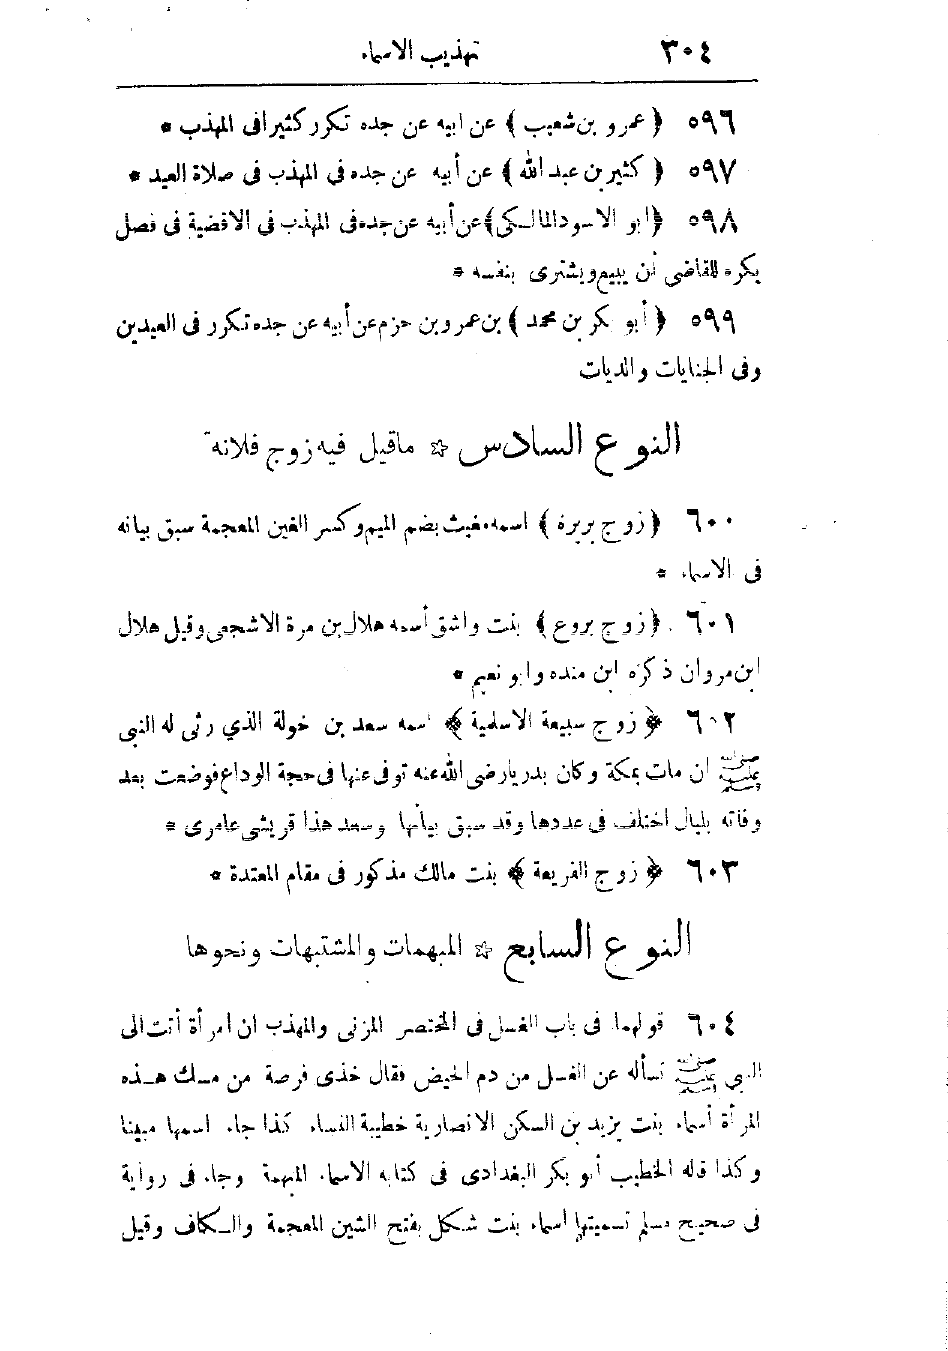 ٣٠٤ تهذيب الاسماء
٥٩٦ ﴿ عمرو بن شعيب ﴾ عن ابيه عن جده تكرر كثيرا فى المهذب *
٥٩٧ ﴿ كثير بن عبد الله ﴾ عن أبيه عن جده فى المهذب فى صلاة العيد *
٥٩٨ ﴿ ابو الاسود المالكى ﴾ عن أبيه عن جده فى المهذب فى الاقضية فى فصل
يكره للقاضى أن يبيع ويشترى بنفسه *
٥٩٩ ﴿ أبو بكر بن محمد ﴾ بن عمرو بن حزم عن أبيه عن جده تكرر فى العيدين
وفى الجنايات والديات
النوع السادس * ما قيل فيه زوج فلانة
٦٠٠ ﴿ زوج بريرة ﴾ اسمه مغيث بضم الميم وكسر الغين المعجمة سبق بيانه
فى الاسماء *
٦٠١ ﴿ زوج بروع ﴾ بنت واشق أسمه هلال بن مرة الاشجعى وقيل هلال
ابن مروان ذكره ابن منده وابو نعيم *
٦٠٢ ﴿ زوج سبيعة الاسلمية ﴾ اسمه سعد بن خولة الذي رثى له النبى
ﷺ ان مات بمكة وكان بدريا رضى الله عنه توفى عنها فى حجة الوداع فوضعت بعد
وفاته بليال اختلف فى عددها وقد سبق بيانها وسعد هذا قريشى عامرى *
٦٠٣ ﴿ زوج الفريعة ﴾ بنت مالك مذكور فى مقام المعتدة *
النوع السابع * المبهمات والمشتبهات ونحوها
٦٠٤ قولهما فى باب الغسل فى المختصر المزنى والمهذب ان امرأة أتت الى
النبي ﷺ تسأله عن الغسل من دم الحيض فقال خذى فرصة من مسك هذه
المرأة أسماء بنت يزيد بن السكن الانصارية خطيبة النساء كذا جاء اسمها مبينا
وكذا قاله الخطيب أبو بكر البغدادى فى كتابه الاسماء المبهمة وجاء فى رواية
فى صحيح مسلم تسميتها اسماء بنت شكل بفتح الشين المعجمة والكاف وقيل